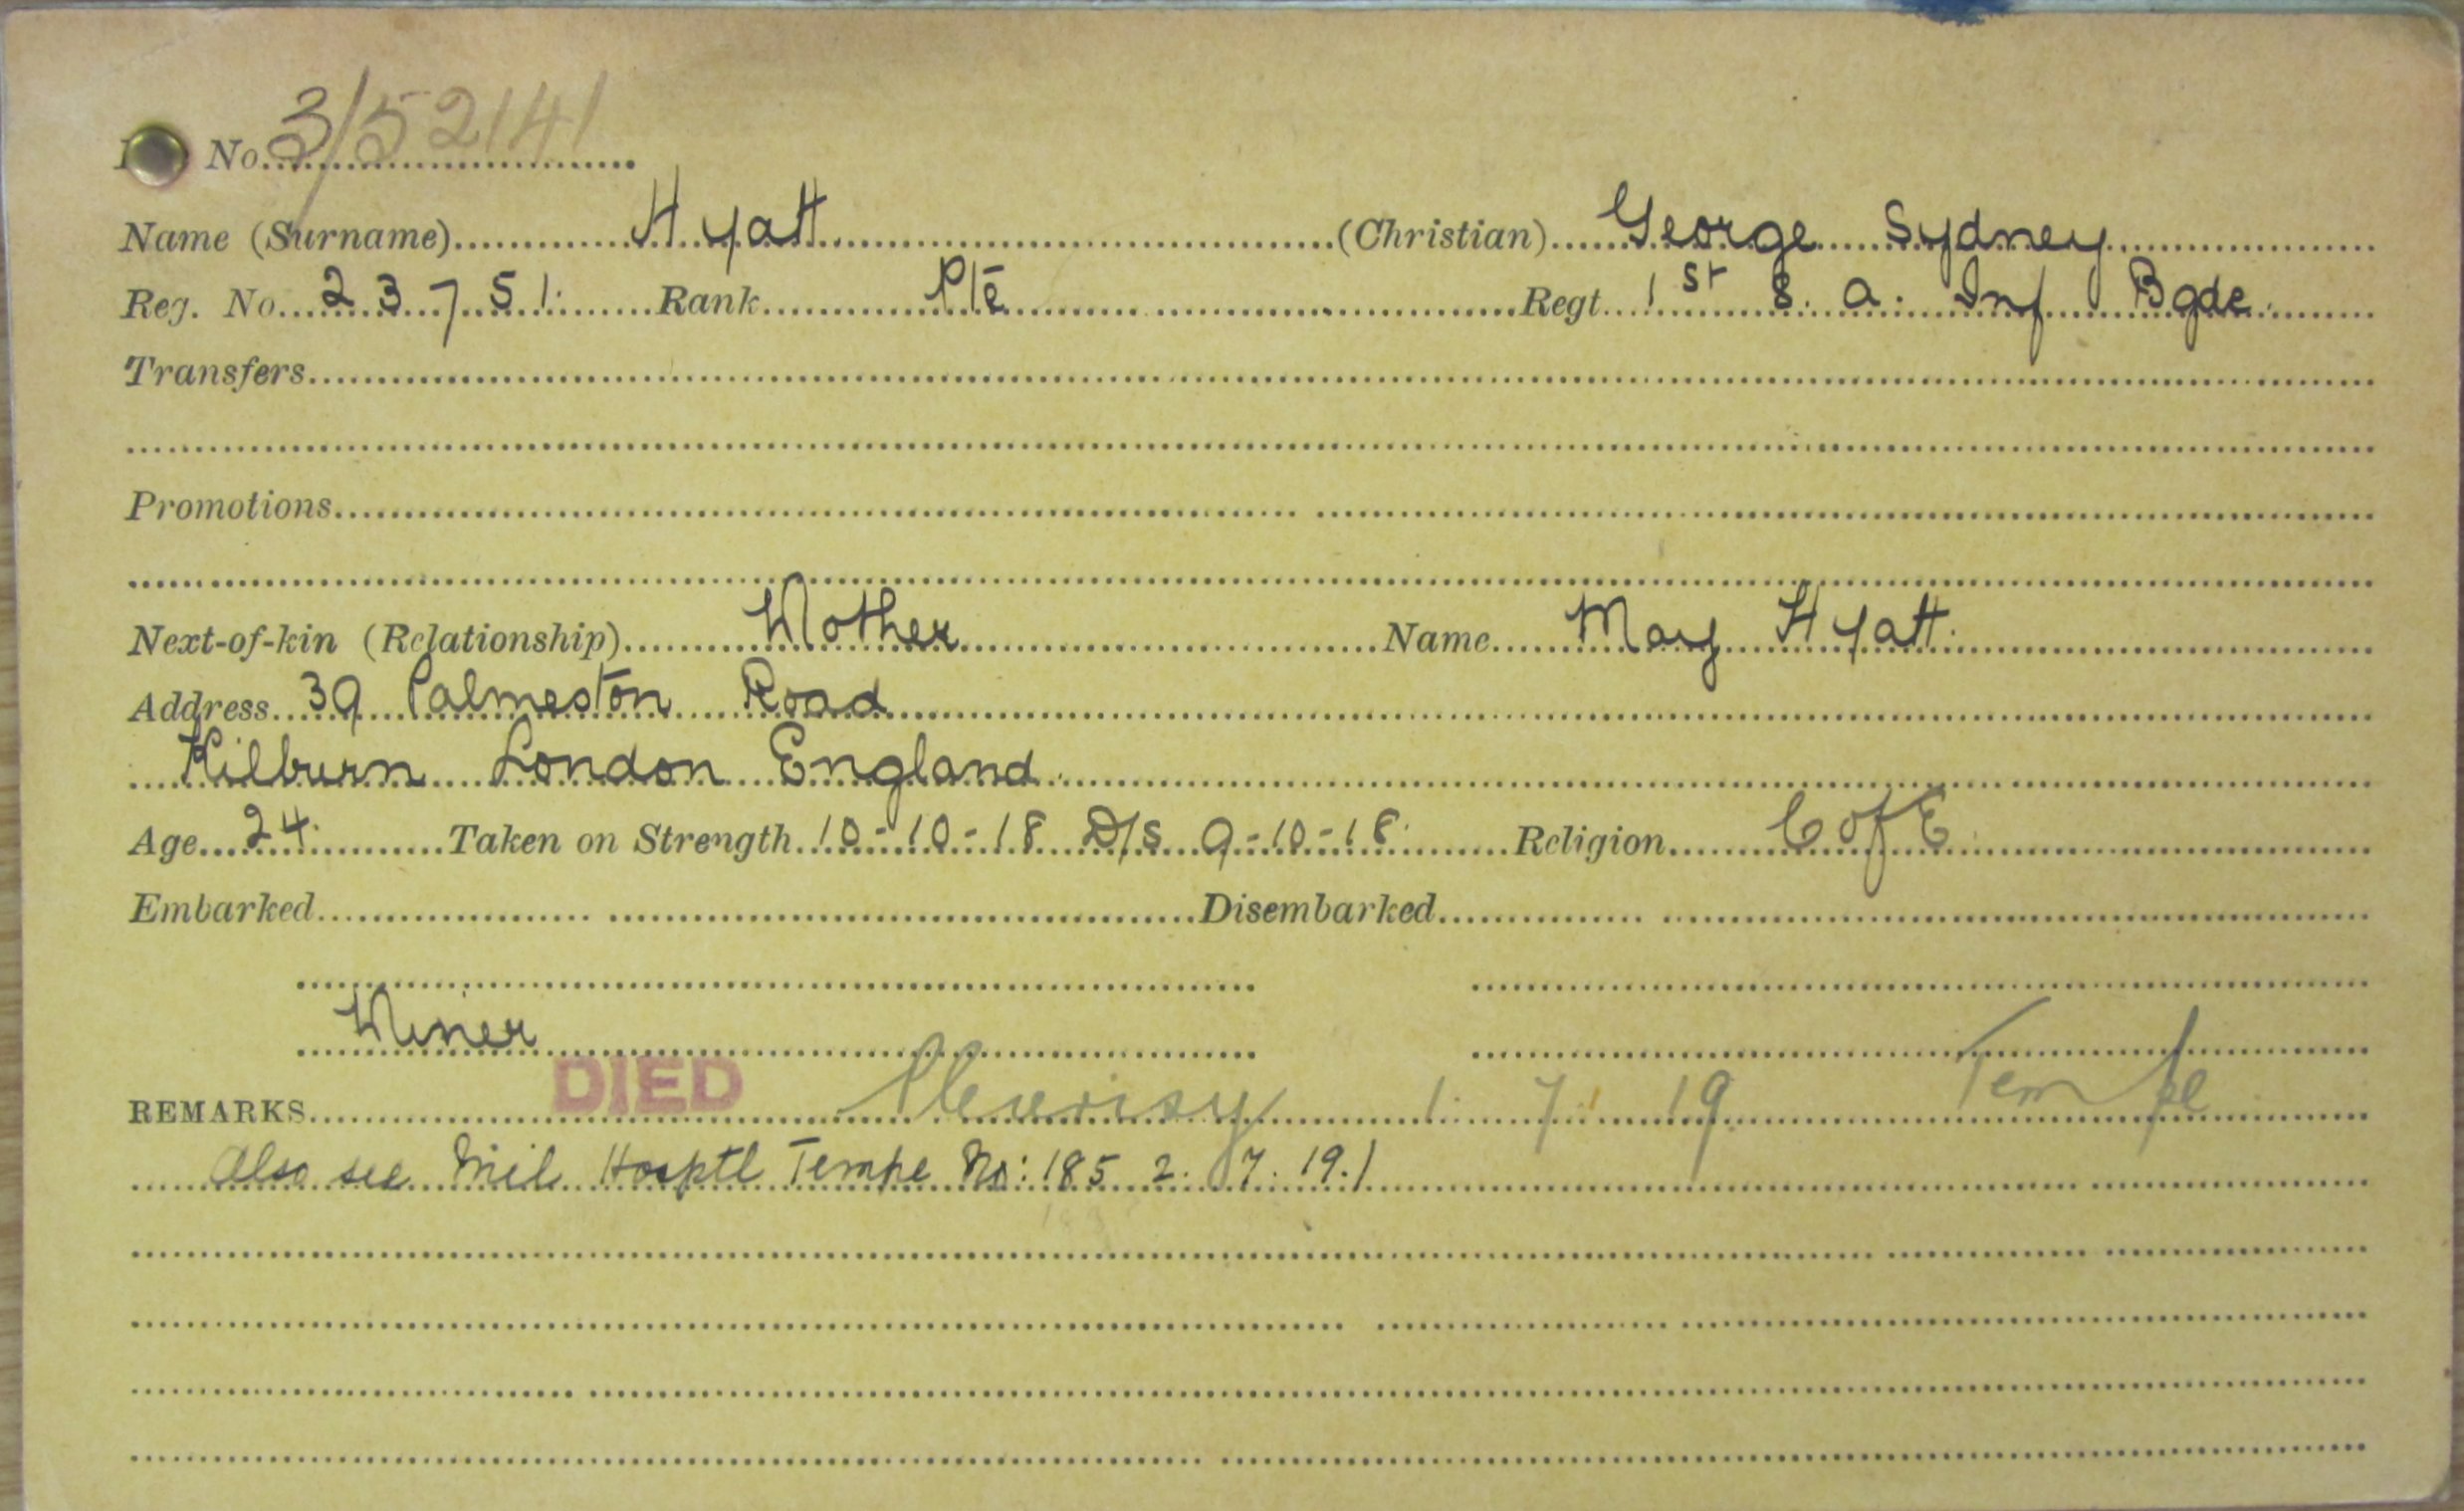 No. 3/52141
Name (Surname) Hyatt (Christian) George Sydney
Reg. No. 23751. Rank Pte Regt. 1st S. A. Inf Bgde.
Transfers
Promotions
Next-of-kin (Relationship) Mother Name May Hyatt.
Address 39 Palmeston Road
Kilburn London England.
Age 24. Taken on Strength 10-10-18 D/S 9-10-18. Religion C of E.
Embarked Disembarked
Miner
REMARKS DIED Pleurisy 1. 7. 19 Tempe
Also see Mil Hosptl Tempe No: 185 2. 7. 19.